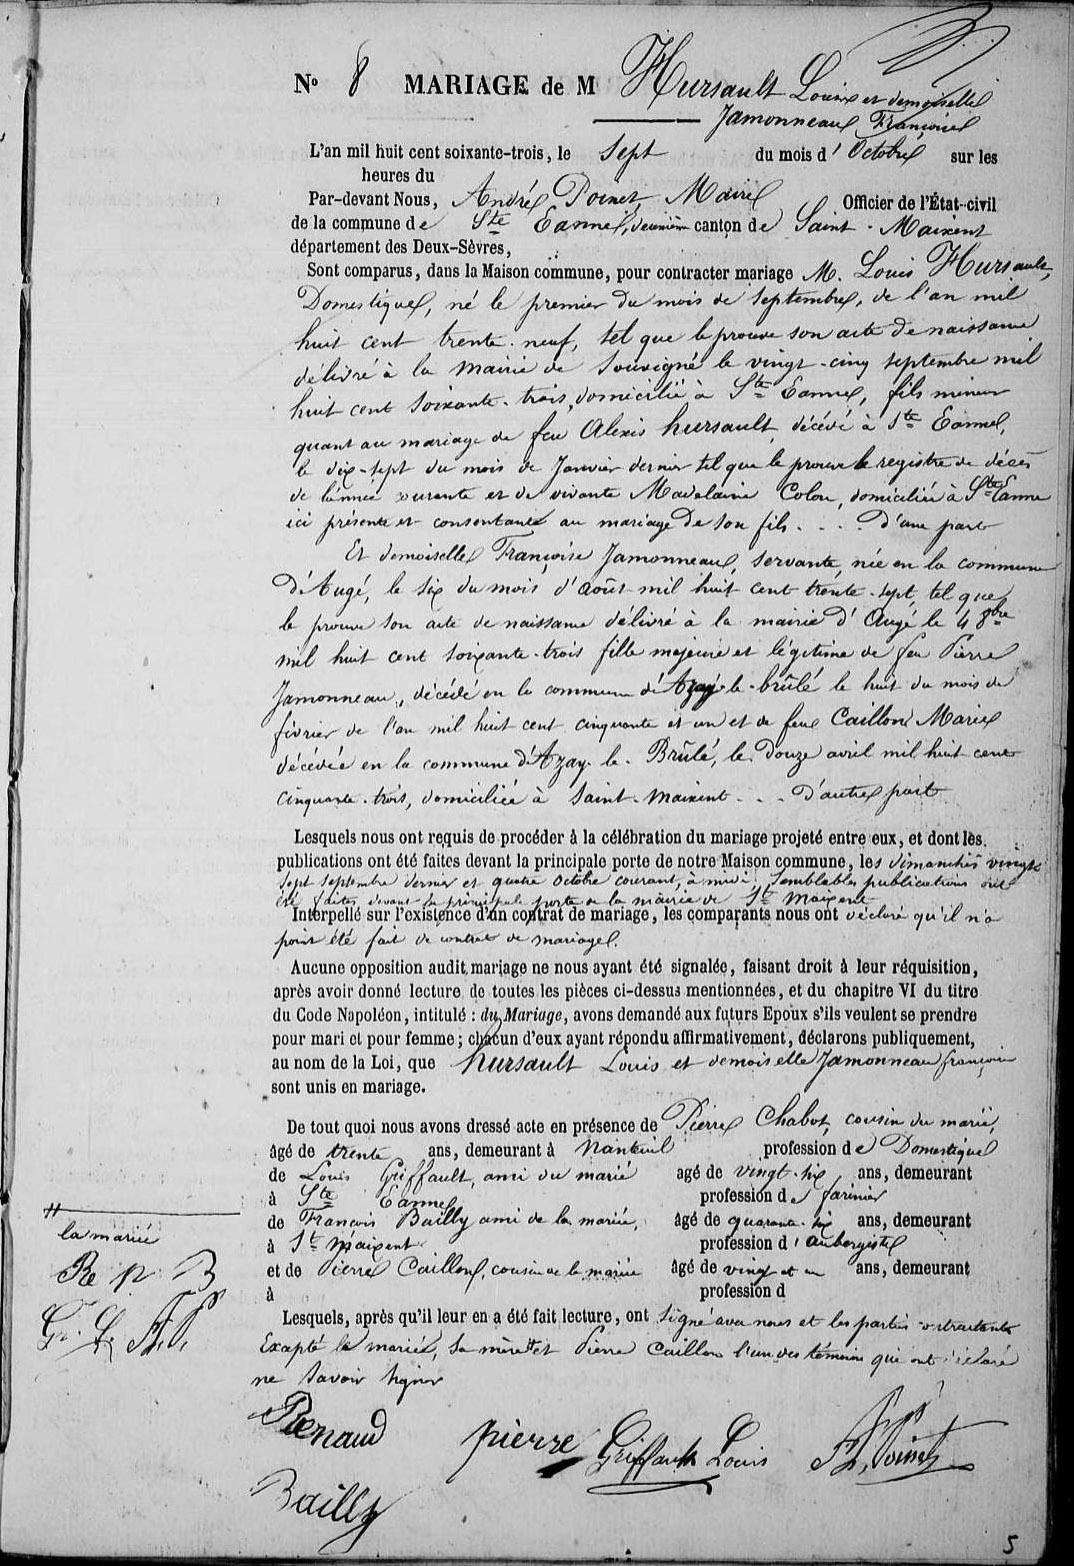 N° 8 MARIAGE de M Hursault Louis et demoiselle
Jamonneau Françoise
L'an mil huit cent soixante-trois, le Sept du mois d'Octobre sur les
heures du
Par-devant Nous, André Poinet Maire Officier de l'État-civil
de la commune de Ste Eanne, deuxième canton de Saint-Maixent
département des Deux-Sèvres,
Sont comparus, dans la Maison commune, pour contracter mariage M. Louis Hursault,
Domestique, né le premier du mois de septembre, de l'an mil
huit cent trente-neuf, tel que le prouve son acte de naissance
délivré à la Mairie de Souvigné le vingt-cinq septembre mil
huit cent soixante-trois, domicilié à Ste Eanne, fils mineur
quant au mariage de feu Alexis hursault, décédé à Ste Eanne,
le dix-sept du mois de Janvier dernier tel que le prouve le registre de décès
de l'année courante et de vivante Madelaine Colon, domiciliée à Ste Eanne
ici présente et consentante au mariage de son fils . . . D'une part
Et demoiselle Françoise Jamonneau, servante, née en la commune
d'Augé, le six du mois d'août mil huit cent trente-sept, tel que
le prouve son acte de naissance délivré à la mairie d'Augé le 4 8bre
mil huit cent soixante-trois fille majeure et légitime de feu Pierre
Jamonneau, décédé en la commune d'Azay-le-brûlé le huit du mois de
février de l'an mil huit cent cinquante et un et de feue Caillon Marie
décédée en la commune d'Azay-le-Brûlé, le Douze avril mil huit cent
cinquante-trois, domiciliée à Saint-Maixent . . . D'autre part
Lesquels nous ont requis de procéder à la célébration du mariage projeté entre eux, et dont les
publications ont été faites devant la principale porte de notre Maison commune, les dimanches vingt
sept septembre dernier et quatre octobre courant, à midi, Semblables publications ont
été faites devant la principale porte de la mairie de St Maixent
Interpellé sur l'existence d'un contrat de mariage, les comparants nous ont déclaré qu'il n'a
point été fait de contrat de mariage.
Aucune opposition audit mariage ne nous ayant été signalée, faisant droit à leur réquisition,
après avoir donné lecture de toutes les pièces ci-dessus mentionnées, et du chapitre VI du titre
du Code Napoléon, intitulé : du Mariage, avons demandé aux futurs Epoux s'ils veulent se prendre
pour mari et pour femme ; chacun d'eux ayant répondu affirmativement, déclarons publiquement,
au nom de la Loi, que hursault Louis et demoiselle Jamonneau françoise
sont unis en mariage.
De tout quoi nous avons dressé acte en présence de Pierre Chabot, cousin du marié,
âgé de trente ans, demeurant à Nanteuil profession de Domestique
de Louis Griffault, ami du marié agé de vingt-six ans, demeurant
à Ste Eanne profession de farinier
de François Bailly ami de la mariée, âgé de quarante-six ans, demeurant
à St Maixent profession d'aubergiste
et de Pierre Caillon, cousin de la mariée âgé de vingt et un ans, demeurant
à profession d
Lesquels, après qu'il leur en a été fait lecture, ont signé avec nous et les parties contractantes
Exapté le marié, sa mère # et Pierre Caillon l'un des témoins qui ont déclaré
ne savoir signer
#
la mariée
Re P B
Gr. L. A.P.
Renaud pierre Griffault Louis A, Poinet
Bailly
5